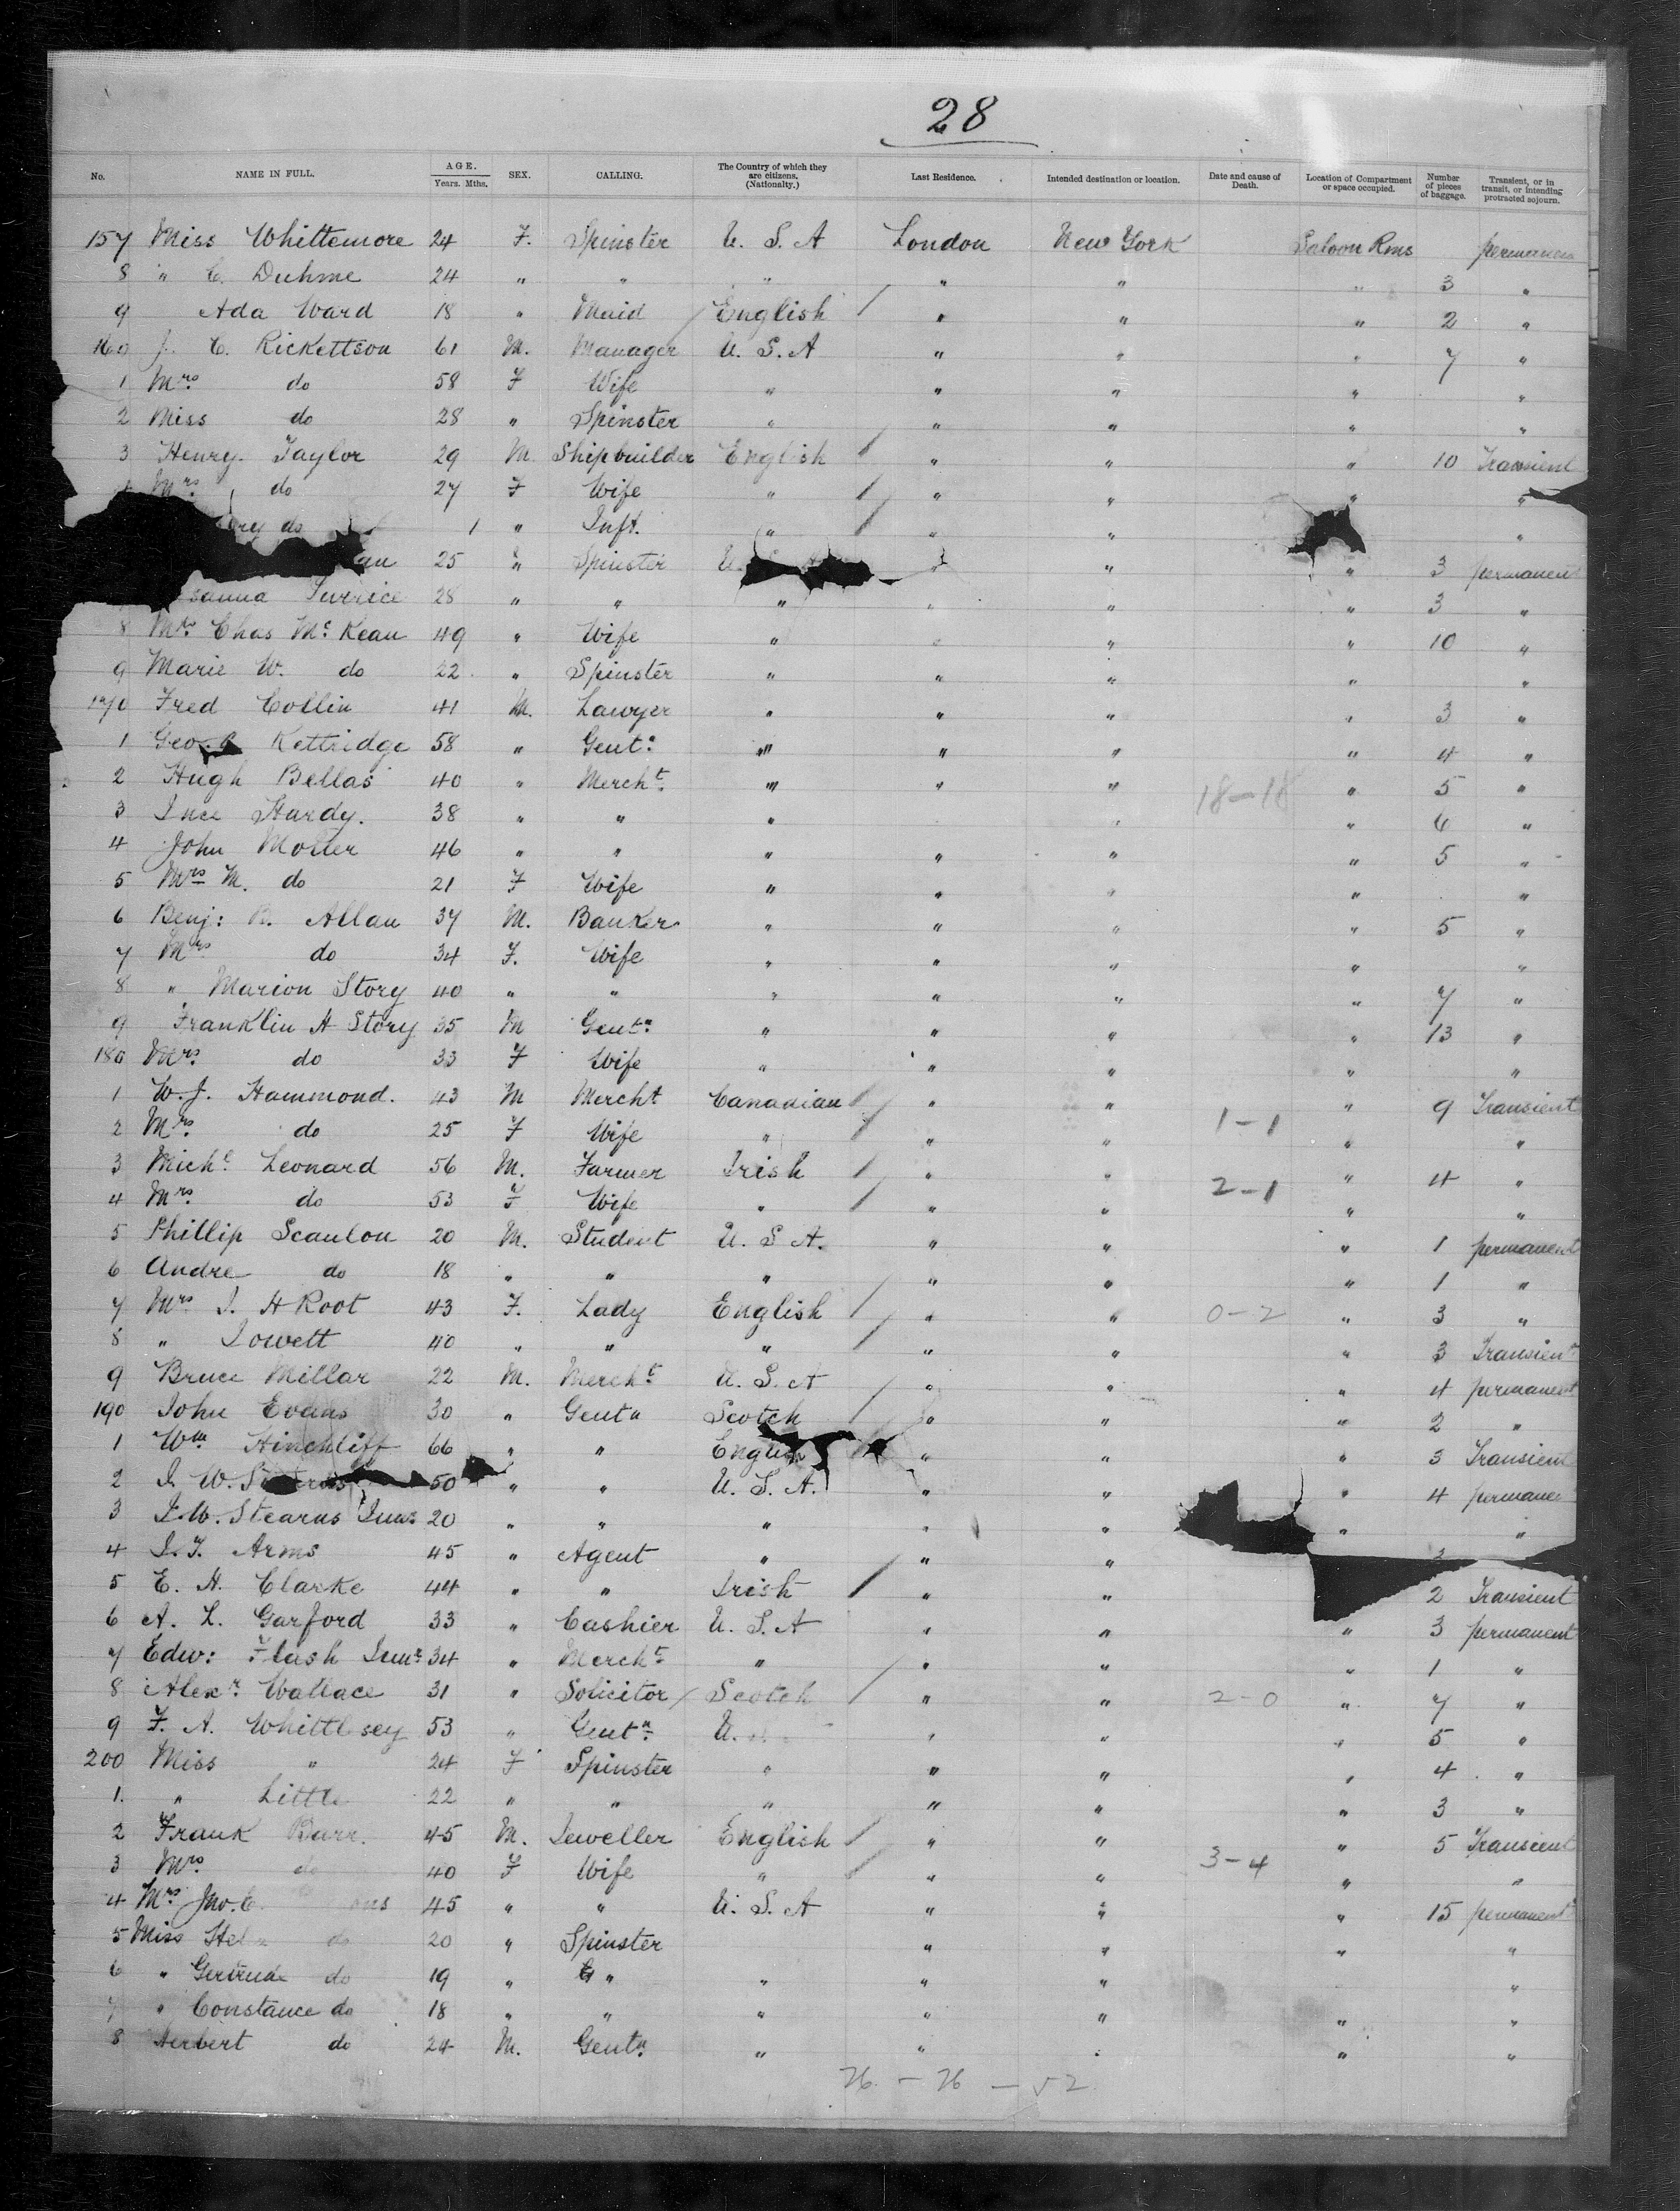 28
No. NAME IN FULL. AGE. Years. Mths. SEX. CALLING. The Country of which they are citizens. (Nationality.) Last Residence. Intended destination or location. Date and cause of Death. Location of Compartment or space occupied. Number of pieces of baggage. Transient, or in transit, or intending protracted sojourn.
157 Miss Whittemore 24 F. Spinster U. S. A London New York Saloon Rms permanen
8 " C. Duhme 24 " " " " " " 3 "
9 Ada Ward 18 " Maid / English / " " " 2 "
160 J. C. Rickettson 61 M. Manager U. S. A " " " 7 "
1 Mrs do 58 F Wife " " " " "
2 Miss do 28 " Spinster " " " " "
3 Henry. Taylor 29 M. Shipbuilder English / " " " 10 Transient
Mrs do 27 F Wife " / " " " "
do 1 " Inft. " / " " "
25 " Spinster U. " " " 3 permanent
28 " " " " " " 3 "
8 Mrs Chas Mc Kean 49 " Wife " " " " 10 "
9 Marie W. do 22 " Spinster " " " " "
170 Fred Collin 41 M. Lawyer " " " " 3 "
1 Geo. Kettridge 58 " Gentn " " " " 4 "
2 Hugh Bellas 40 " Mercht " " " 18-18 " 5 "
3 Ince Hardy. 38 " " " " " 6 "
4 John Moller 46 " " " " " " 5 "
5 Mrs M. do 21 F Wife " " " " "
6 Benj: B. Allan 37 M. Banker " " " " 5 "
7 Mrs do 34 F. Wife " " " " "
8 " Marion Story 40 " " " " " " 7 "
9 Franklin A Story 35 M Gentn " " " " 13 "
180 Mrs do 33 F Wife " " " " "
1 W. J. Hammond. 43 M Mercht Canadian / " " " 9 Transient
2 Mrs do 25 F Wife " / " " 1-1 " "
3 Michl Leonard 56 M. Farmer Irish / " " " 4 "
4 Mrs do 53 F Wife " / " " 2-1 " "
5 Phillip Scanlon 20 M. Student U. S A. " " " 1 permanent
6 Andre do 18 " " " " " " 1 "
7 Mrs J. H Root 43 F. Lady English / " " 0-2 " 3 "
8 " Jowett 40 " " " / " " " 3 Transient
9 Bruce Millar 22 M. Mercht U. S. A " " " 4 permanent
190 John Evans 30 " Gentn Scotch / " " " 2 "
1 Wm Hinchliff 66 " " English / " " " 3 Transient
2 J. W. 50 " " U. S. A. " " " 4 permanen
3 J. W. Stearns Junr 20 " " " " " " "
4 J. F. Arms 45 " Agent " " "
5 E. H. Clarke 44 " " Irish / " " 2 Transient
6 A. L. Garford 33 " Cashier U. S. A " " " 3 permanent
7 Edw: Flash Junr 34 " Mercht " " " " 1 "
8 Alexr Wallace 31 " Solicitor / Scotch / " " 2-0 " 7 "
9 F. A. Whittlesey 53 " Gentn U. " " " 5 "
200 Miss " 24 F Spinster " " " " 4 "
1. " Little 22 " " " " " " 3 "
2 Frank Barr. 45 M. Jeweller English / " " " 5 Transient
3 Mrs do 40 F Wife " / " " 3-4 " "
4 Mrs Jno. C. 45 " " U. S. A " " " 15 permanent
5 Miss do 20 " Spinster " " " "
6 " Gertrude do 19 " " " " " "
7 " Constance do 18 " " " " " " "
8 Herbert do 24 M. Gentn " " " " "
26 - 26 - 52